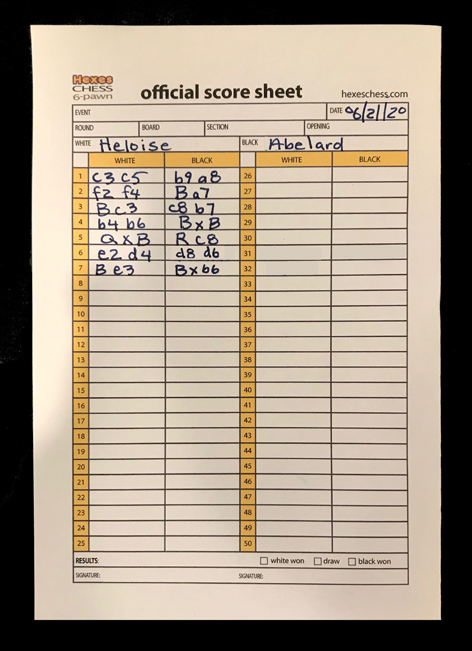 Hexes
CHESS
6-pawn
official score sheet
hexeschess.com
EVENT DATE 06/21/20
ROUND BOARD SECTION OPENING
WHITE Heloise BLACK Abelard
WHITE BLACK WHITE BLACK
1 c3 c5 b9 a8 26
2 f2 f4 B a7 27
3 B c3 c8 b7 28
4 b4 b6 B x B 29
5 Q x B R c8 30
6 e2 d4 d8 d6 31
7 B e3 B x b6 32
8 33
9 34
10 35
11 36
12 37
13 38
14 39
15 40
16 41
17 42
18 43
19 44
20 45
21 46
22 47
23 48
24 49
25 50
RESULTS: white won draw black won
SIGNATURE: SIGNATURE: